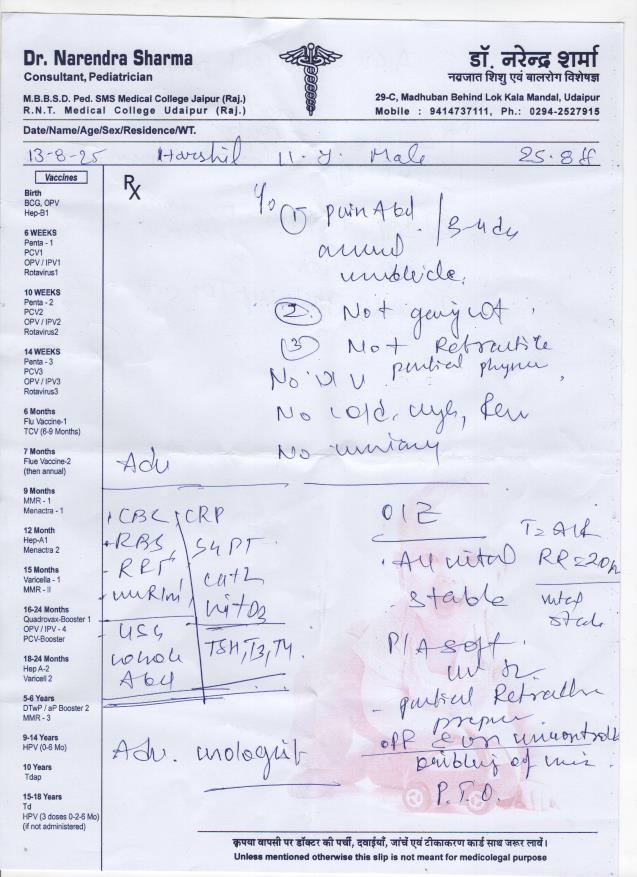 Dr. Narendra Sharma
Consultant, Pediatrician
M.B.B.S.D. Ped. SMS Medical College Jaipur (Raj.)
R.N.T. Medical College Udaipur (Raj.)
डॉ. नरेन्द्र शर्मा
नवजात शिशु एवं बालरोग विशेषज्ञ
29-C, Madhuban Behind Lok Kala Mandal, Udaipur
Mobile : 9414737111, Ph.: 0294-2527915
Date/Name/Age/Sex/Residence/WT.
13-8-25 Harshil 11. y. Male 25.8
Vaccines
Birth
BCG, OPV
Hep-B1
6 WEEKS
Penta - 1
PCV1
OPV / IPV1
Rotavirus1
10 WEEKS
Penta - 2
PCV2
OPV / IPV2
Rotavirus2
14 WEEKS
Penta - 3
PCV3
OPV / IPV3
Rotavirus3
6 Months
Flu Vaccine-1
TCV (6-9 Months)
7 Months
Flue Vaccine-2
(then annual)
9 Months
MMR - 1
Menactra - 1
12 Month
Hep-A1
Menactra 2
15 Months
Varicella - 1
MMR - II
16-24 Months
Quadrovax-Booster 1
OPV / IPV - 4
PCV-Booster
18-24 Months
Hep A-2
Varicell 2
5-6 Years
DTwP / aP Booster 2
MMR - 3
9-14 Years
HPV (0-6 Mo)
10 Years
Tdap
15-18 Years
Td
HPV (3 doses 0-2-6 Mo)
(if not administered)
Rx
① pain Abd
around
② Not
③ Not Retractile
partial
No
No cold,
No
Adv
CBC CRP
RBS SGPT
RFT
Vit D3
USG TSH, T3, T4
whole
Abd
Adv. urologist
O/E
All vital RR = 20
stable
P/A soft
- partial
P.T.O.
कृपया वापसी पर डॉक्टर की पर्ची, दवाईयाँ, जांचें एवं टीकाकरण कार्ड साथ जरूर लावें।
Unless mentioned otherwise this slip is not meant for medicolegal purpose